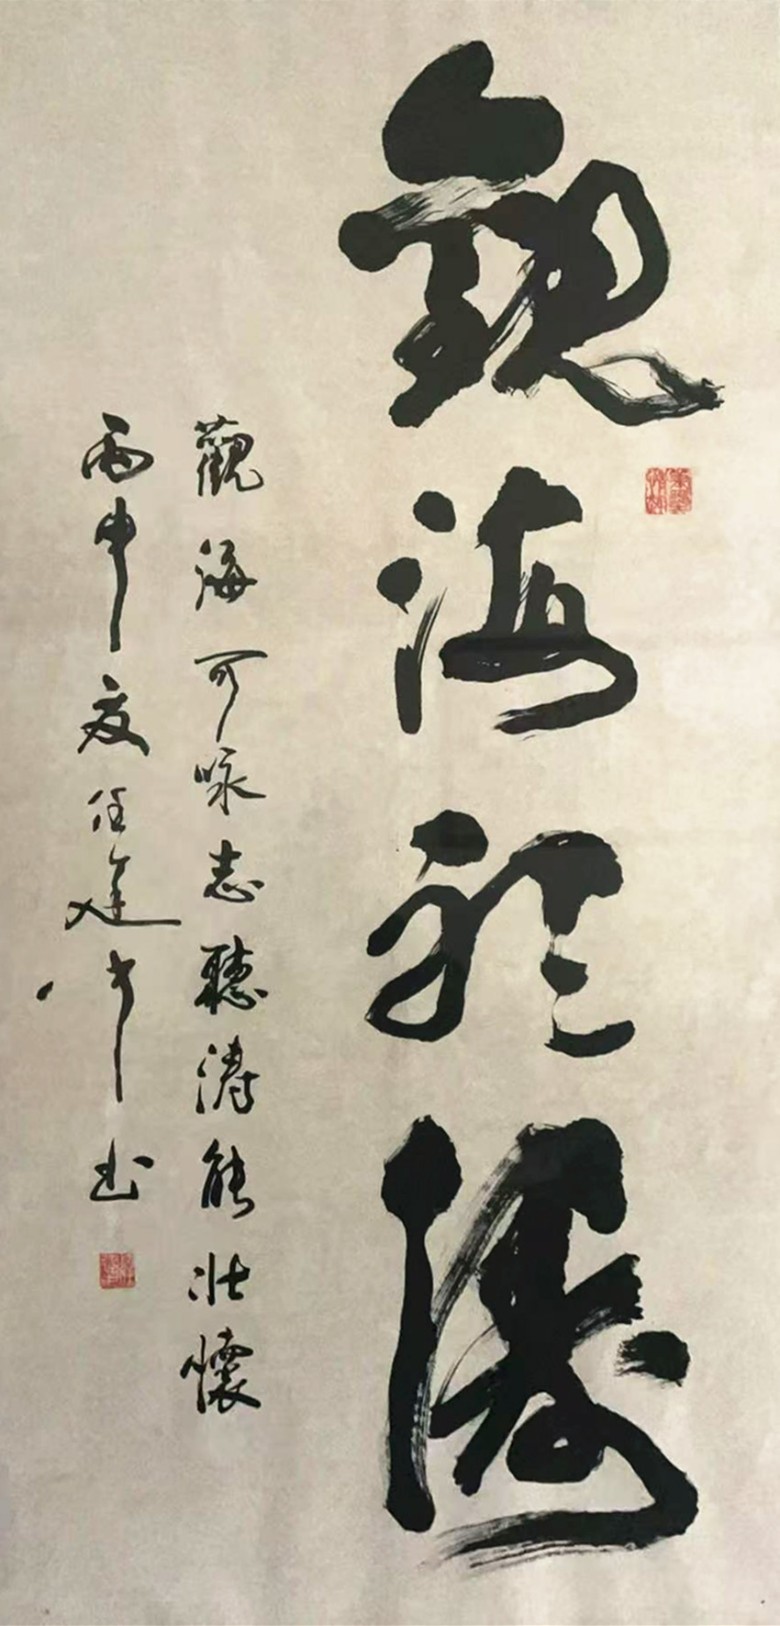 觀海聽濤
觀海可咏志聽濤能壯懷
丙申夏任建书